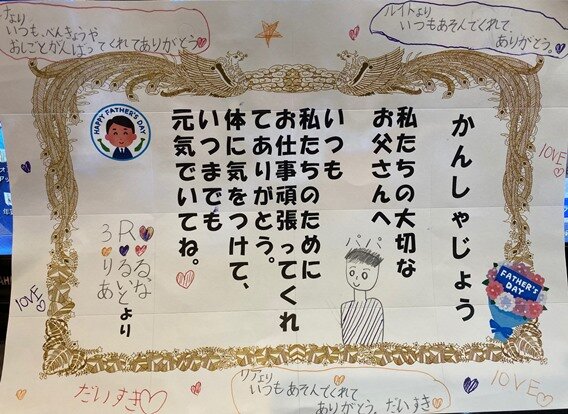 ナより
いつも、べんきょうや
おしごとがんばってくれてありがとう♡
ルイトより
いつもあそんでくれて、
ありがとう。
HAPPY FATHER'S DAY
かんしゃじょう
私たちの大切な
お父さんへ
いつも
私たちのために
お仕事頑張ってくれ
てありがとう。
体に気をつけて、
いつまでも
元気でいてね。
るな
るいと
りあ
より
パパ
FATHER'S
DAY
LOVE
LOVE
LOVE
だいすき♡
リアより
いつもあそんでくれて
ありがとう。だいすき